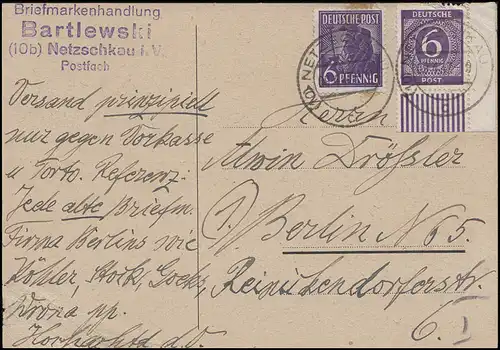 Briefmarkenhandlung
Bartlewski
(10b) Netzschkau i.V.
Postfach
DEUTSCHE POST
6 PFENNIG
DEUTSCHE
6
PFENNIG
POST
Versand prinzipiell
nur gegen Vorkasse
u Porto. Referenz:
Jede alte Briefm.
Firma Berlins wie
Köhler,
Herrn
Alwin Dröfsler
1) Berlin No 5.
Reinickendorferstr.
6.